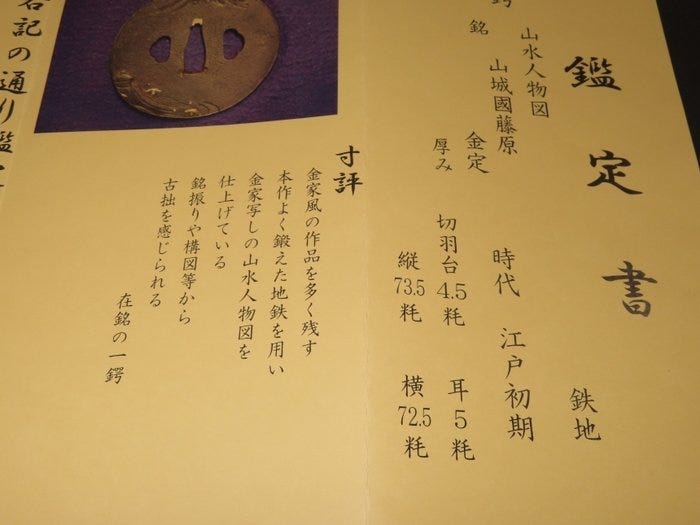 鑑定書
山水人物図　鉄地
鍔 銘 山城國藤原 金定
時代 江戸初期
厚み 切羽台 4.5 粍 耳 5 粍
縦 73.5 粍 横 72.5 粍
寸評
金家風の作品を多く残す
本作よく鍛えた地鉄を用い
金家写しの山水人物図を
仕上げている
銘振りや構図等から
古拙を感じられる
在銘の一鍔
記の通り鑑